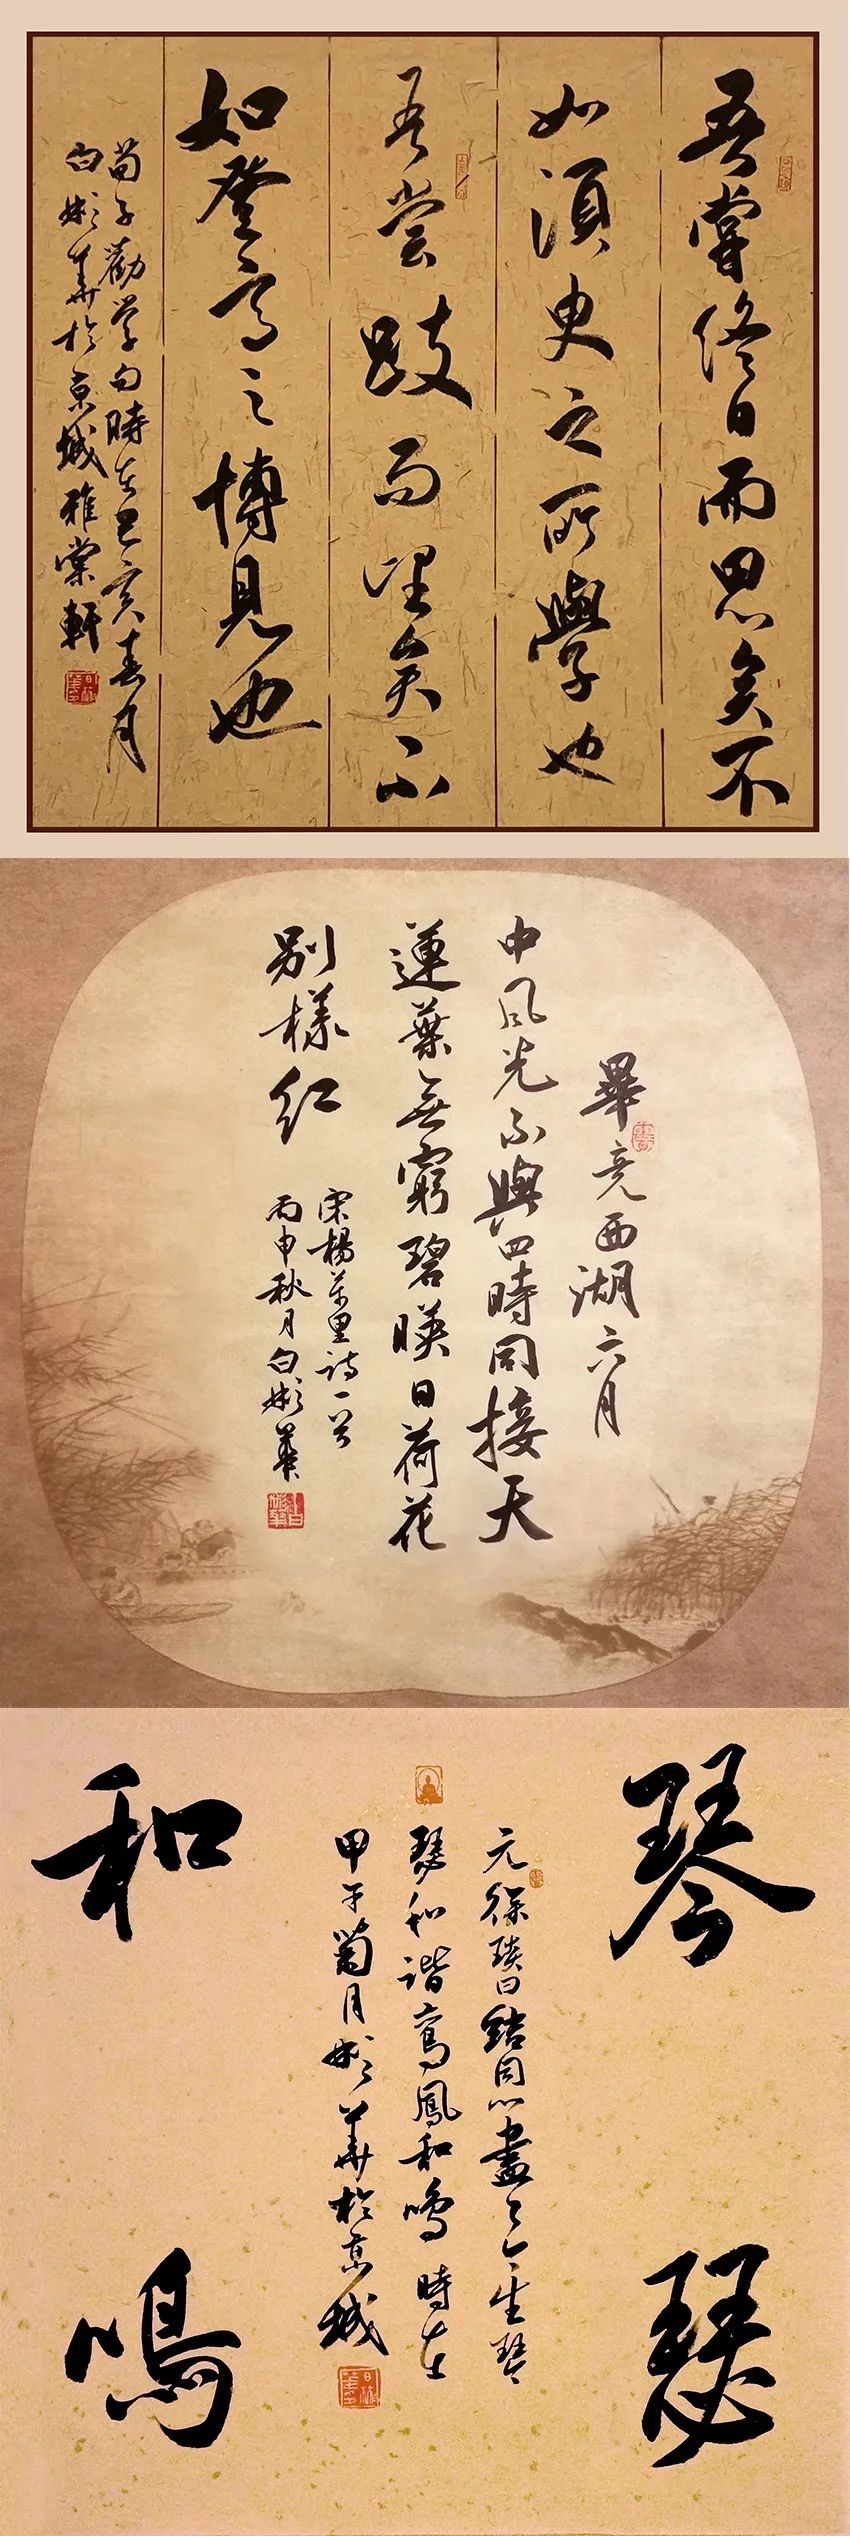 吾嘗終日而思矣不
如須臾之所學也
吾尝跂而望矣不
如登高之博見也
荀子勸学句時在己亥春月
白彬華於京城雅棠軒
畢竟西湖六月
中风光不與四時同接天
蓮葉無窮碧暎日荷花
别樣红
宋楊萬里詩一首
丙申秋月白彬華
琴瑟
和鳴
元徐琰曰結同心盡了今生琴
瑟和谐鸾鳳和鸣時在
甲午菊月彬華於京城